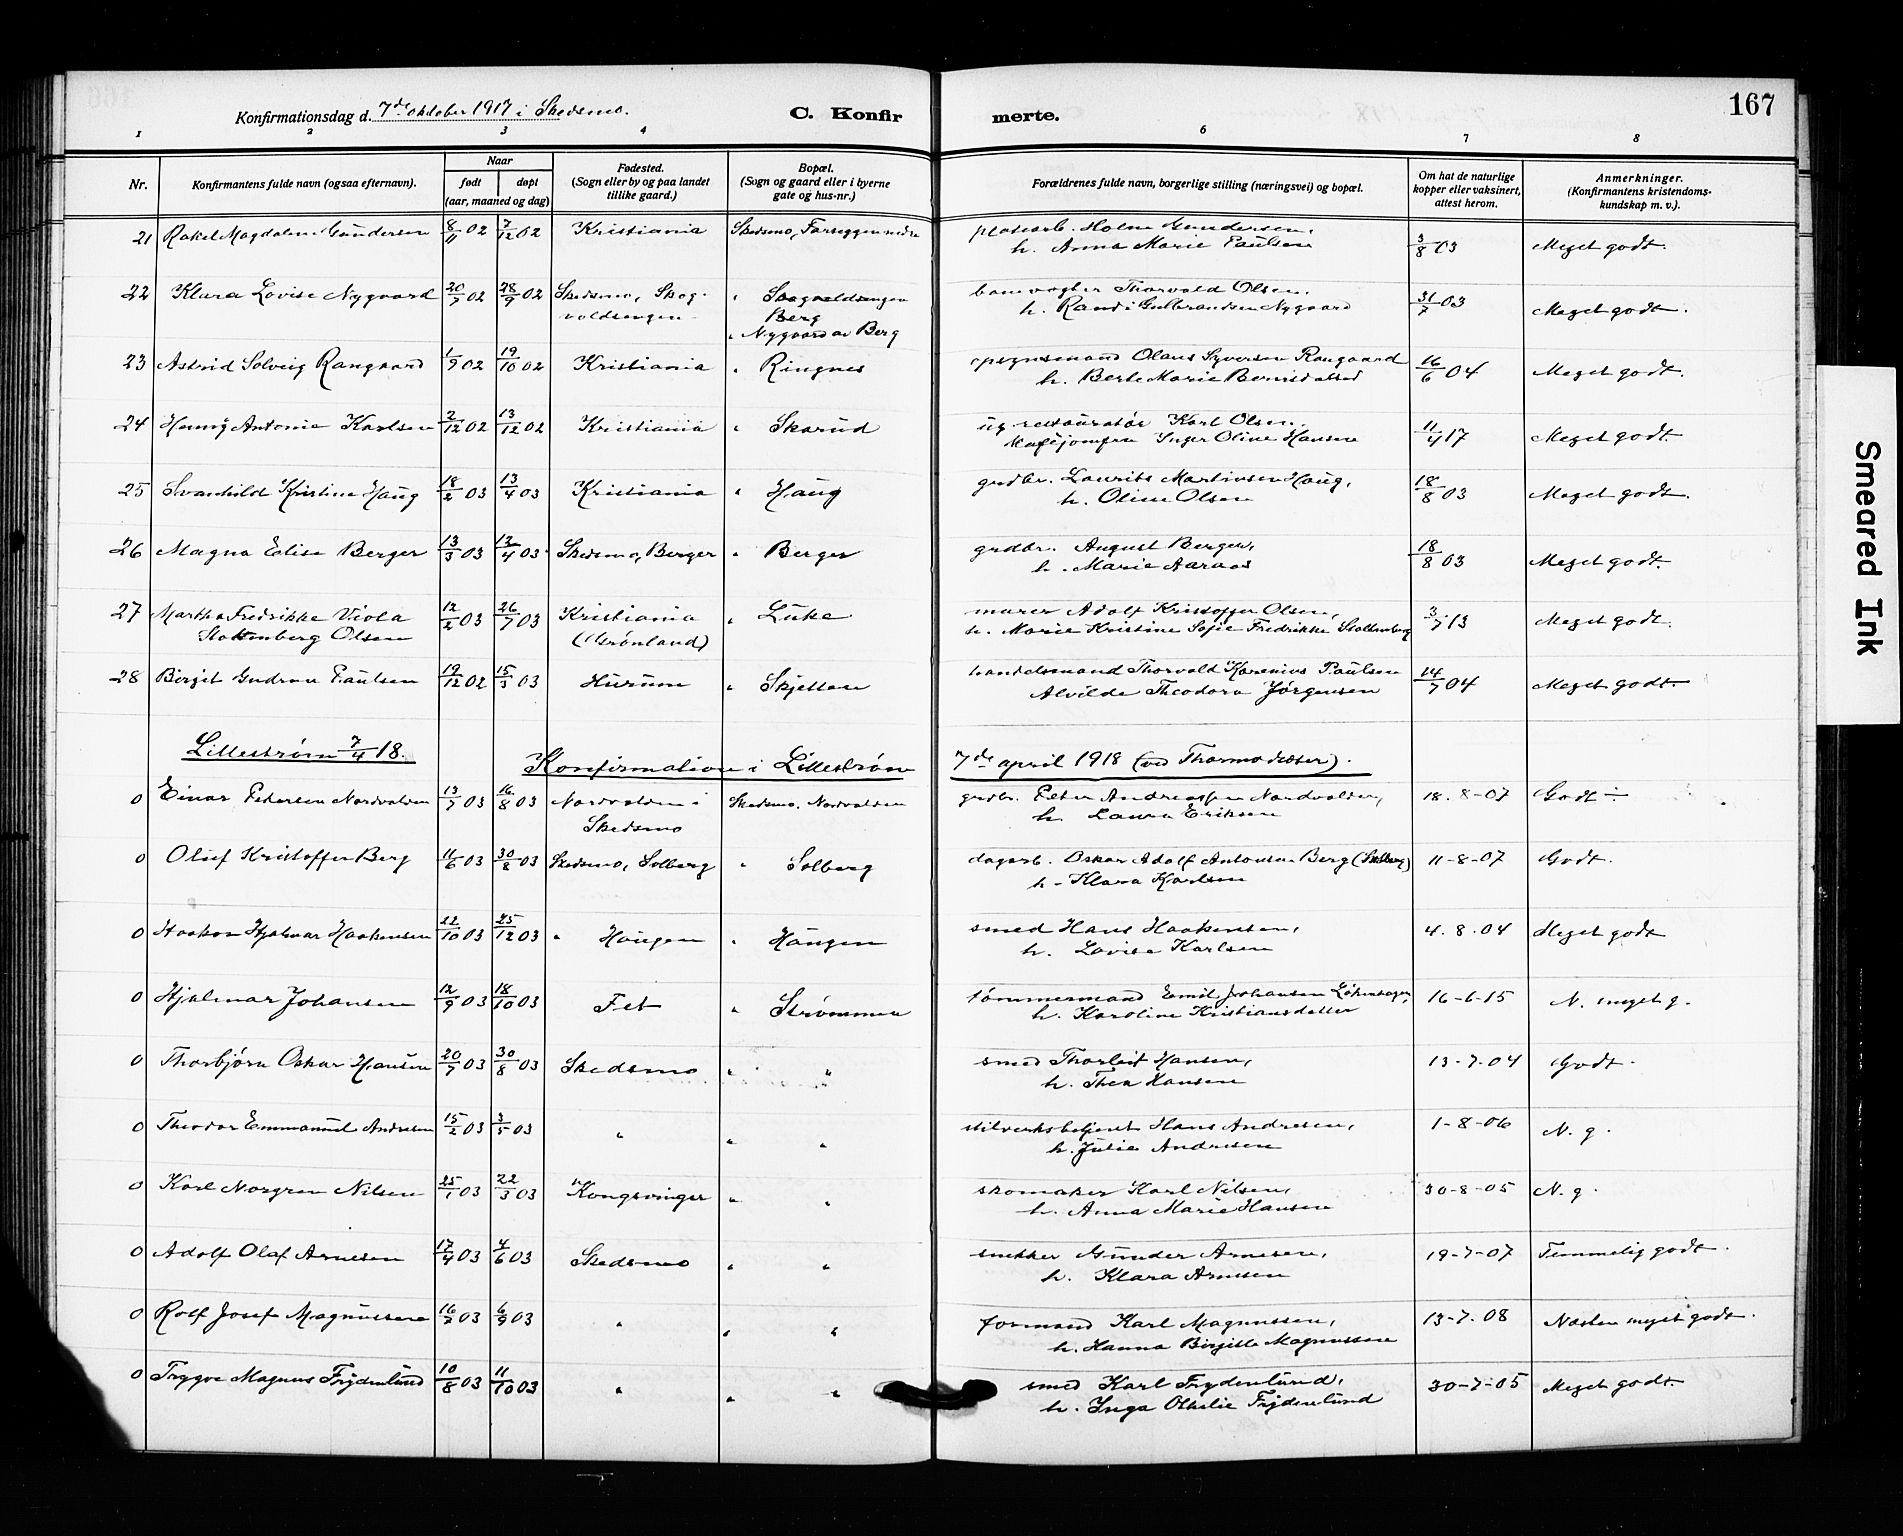 167
Konfirmationsdag d. 7de oktober 1917 i Skedsmo.
C. Konfirmerte.
1 2 3 4 6 7 8
Nr.
Konfirmantens fulde navn (ogsaa efternavn).
Naar
født døpt
(aar, maaned og dag)
Fødested.
(Sogn eller by og paa landet
tillike gaard.)
Bopæl.
(Sogn og gaard eller i byerne
gate og hus-nr.)
Forældrenes fulde navn, borgerlige stilling (næringsvei) og bopæl.
Om hat de naturlige
kopper eller vaksinert,
attest herom.
Anmerkninger.
(Konfirmantens kristendoms-
kundskap m. v.).
21 Rakel Magdalene Gundersen 8/11 02 7/12 02 Kristiania Skedsmo, Farseggen nedre platearb. Holm Gundersen, 3/8 03 Meget godt.
h. Anna Marie Paulsen
22 Klara Lovise Nygaard 20/7 02 28/9 02 Skedsmo, Skog- " Skogvoldsengen banevogter Thorvald Olsen, 31/7 03 Meget godt.
voldsengen Berg h. Randi Gulbrandsen Nygaard
" Nygaard av Berg
23 Astrid Solveig Rangaard 1/9 02 19/10 02 Kristiania " Ringnes opsynsmand Olaus Syversen Rangaard 16/6 04 Meget godt.
h. Berte Marie
24 Henny Antonie Karlsen 2/12 02 13/12 02 Kristiania " Skarud ug restauratør Karl Olsen, 11/4 17 Meget godt.
Kafejomfru Inger Oline Hansen
25 Svanhild Kristine Haug 18/2 03 13/4 03 Kristiania " Haug grdbr. Laurits Martinsen Haug, 18/8 03 Meget godt.
h. Oline Olsen
26 Magna Elise Berger 13/3 03 13/4 03 Skedsmo, Berger " Berger grdbr. August Berger, 18/8 03 Meget godt.
h. Marie Aaraas
27 Martha Fredrikke Viola 12/2 03 26/7 03 Kristiania " Luke murer Adolf Kristoffer Olsen, 3/7 13 Meget godt.
Stoltenberg Olsen (Grønland) h. Marie Kristine Sofie Fredrikke Stoltenberg
28 Birgit Gudrun Paulsen 19/12 02 15/3 03 Hurum " Skjetten handelsmand Thorvald Karenius Paulsen 14/7 04 Meget godt.
Alvilde Theodora Jørgensen
Lillestrøm 7/4 18. Konfirmation i Lillestrøm 7de april 1918 (ved Thormodsæter).
0 Einar Petersen Nordvolden 13/7 03 16/8 03 Nordvolden i Skedsmo, Nordvolden grdbr. Peter Andreassen Nordvolden, 18.8-07 Godt ÷
Skedsmo h. Laura Eriksen
0 Oluf Kristoffer Berg 11/6 03 30/8 03 Skedsmo, Solberg " Solberg dagarb. Oskar Adolf Antonsen Berg (Solberg) 11-8-07 Godt.
h. Klara Karlsen
0 Haakon Hjalmar Haakensen 22/10 03 25/12 03 " Haugen " Haugen smed Hans Haakensen, 4.8.04 Meget godt
h. Lovise Karlsen
0 Hjalmar Johansen 12/9 03 18/10 03 Fet " Strømmen tømmermand Emil Johansen Løkenhagen, 16-6-15 N. meget g.
h. Karoline Kristiansdatter
0 Thorbjørn Oskar Hansen 20/7 03 30/8 03 Skedsmo " " smed Thorleif Hansen, 13-7-04 Godt.
h. Thea Hansen
0 Theodor Emmanuel Andresen 15/2 03 3/5 03 " " " Hans Andresen, 1-8-06 N. g.
h. Julie Andresen
0 Karl Norgren Nilsen 25/1 03 22/3 03 Kongsvinger " " skomaker Karl Nilsen, 30-8-05 N. g.
h. Anna Marie Hansen
0 Adolf Olaf Arnesen 17/4 03 4/6 03 Skedsmo " " snekker Gunder Arnesen, 19-7-07 Temmelig godt.
h. Klara Arnesen
0 Rolf Josef Magnussen 16/7 03 6/9 03 " " " formand Karl Magnussen, 13-7.08 Næsten meget godt.
h. Hanna Birgitte Magnussen
0 Trygve Magnus Frydenlund 10/8 03 11/10 03 " " " smed Karl Frydenlund, 30-7-05 Meget godt.
h. Inga Othelie Frydenlund
Smeared Ink